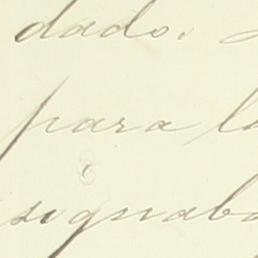 dado.
para la
signaba